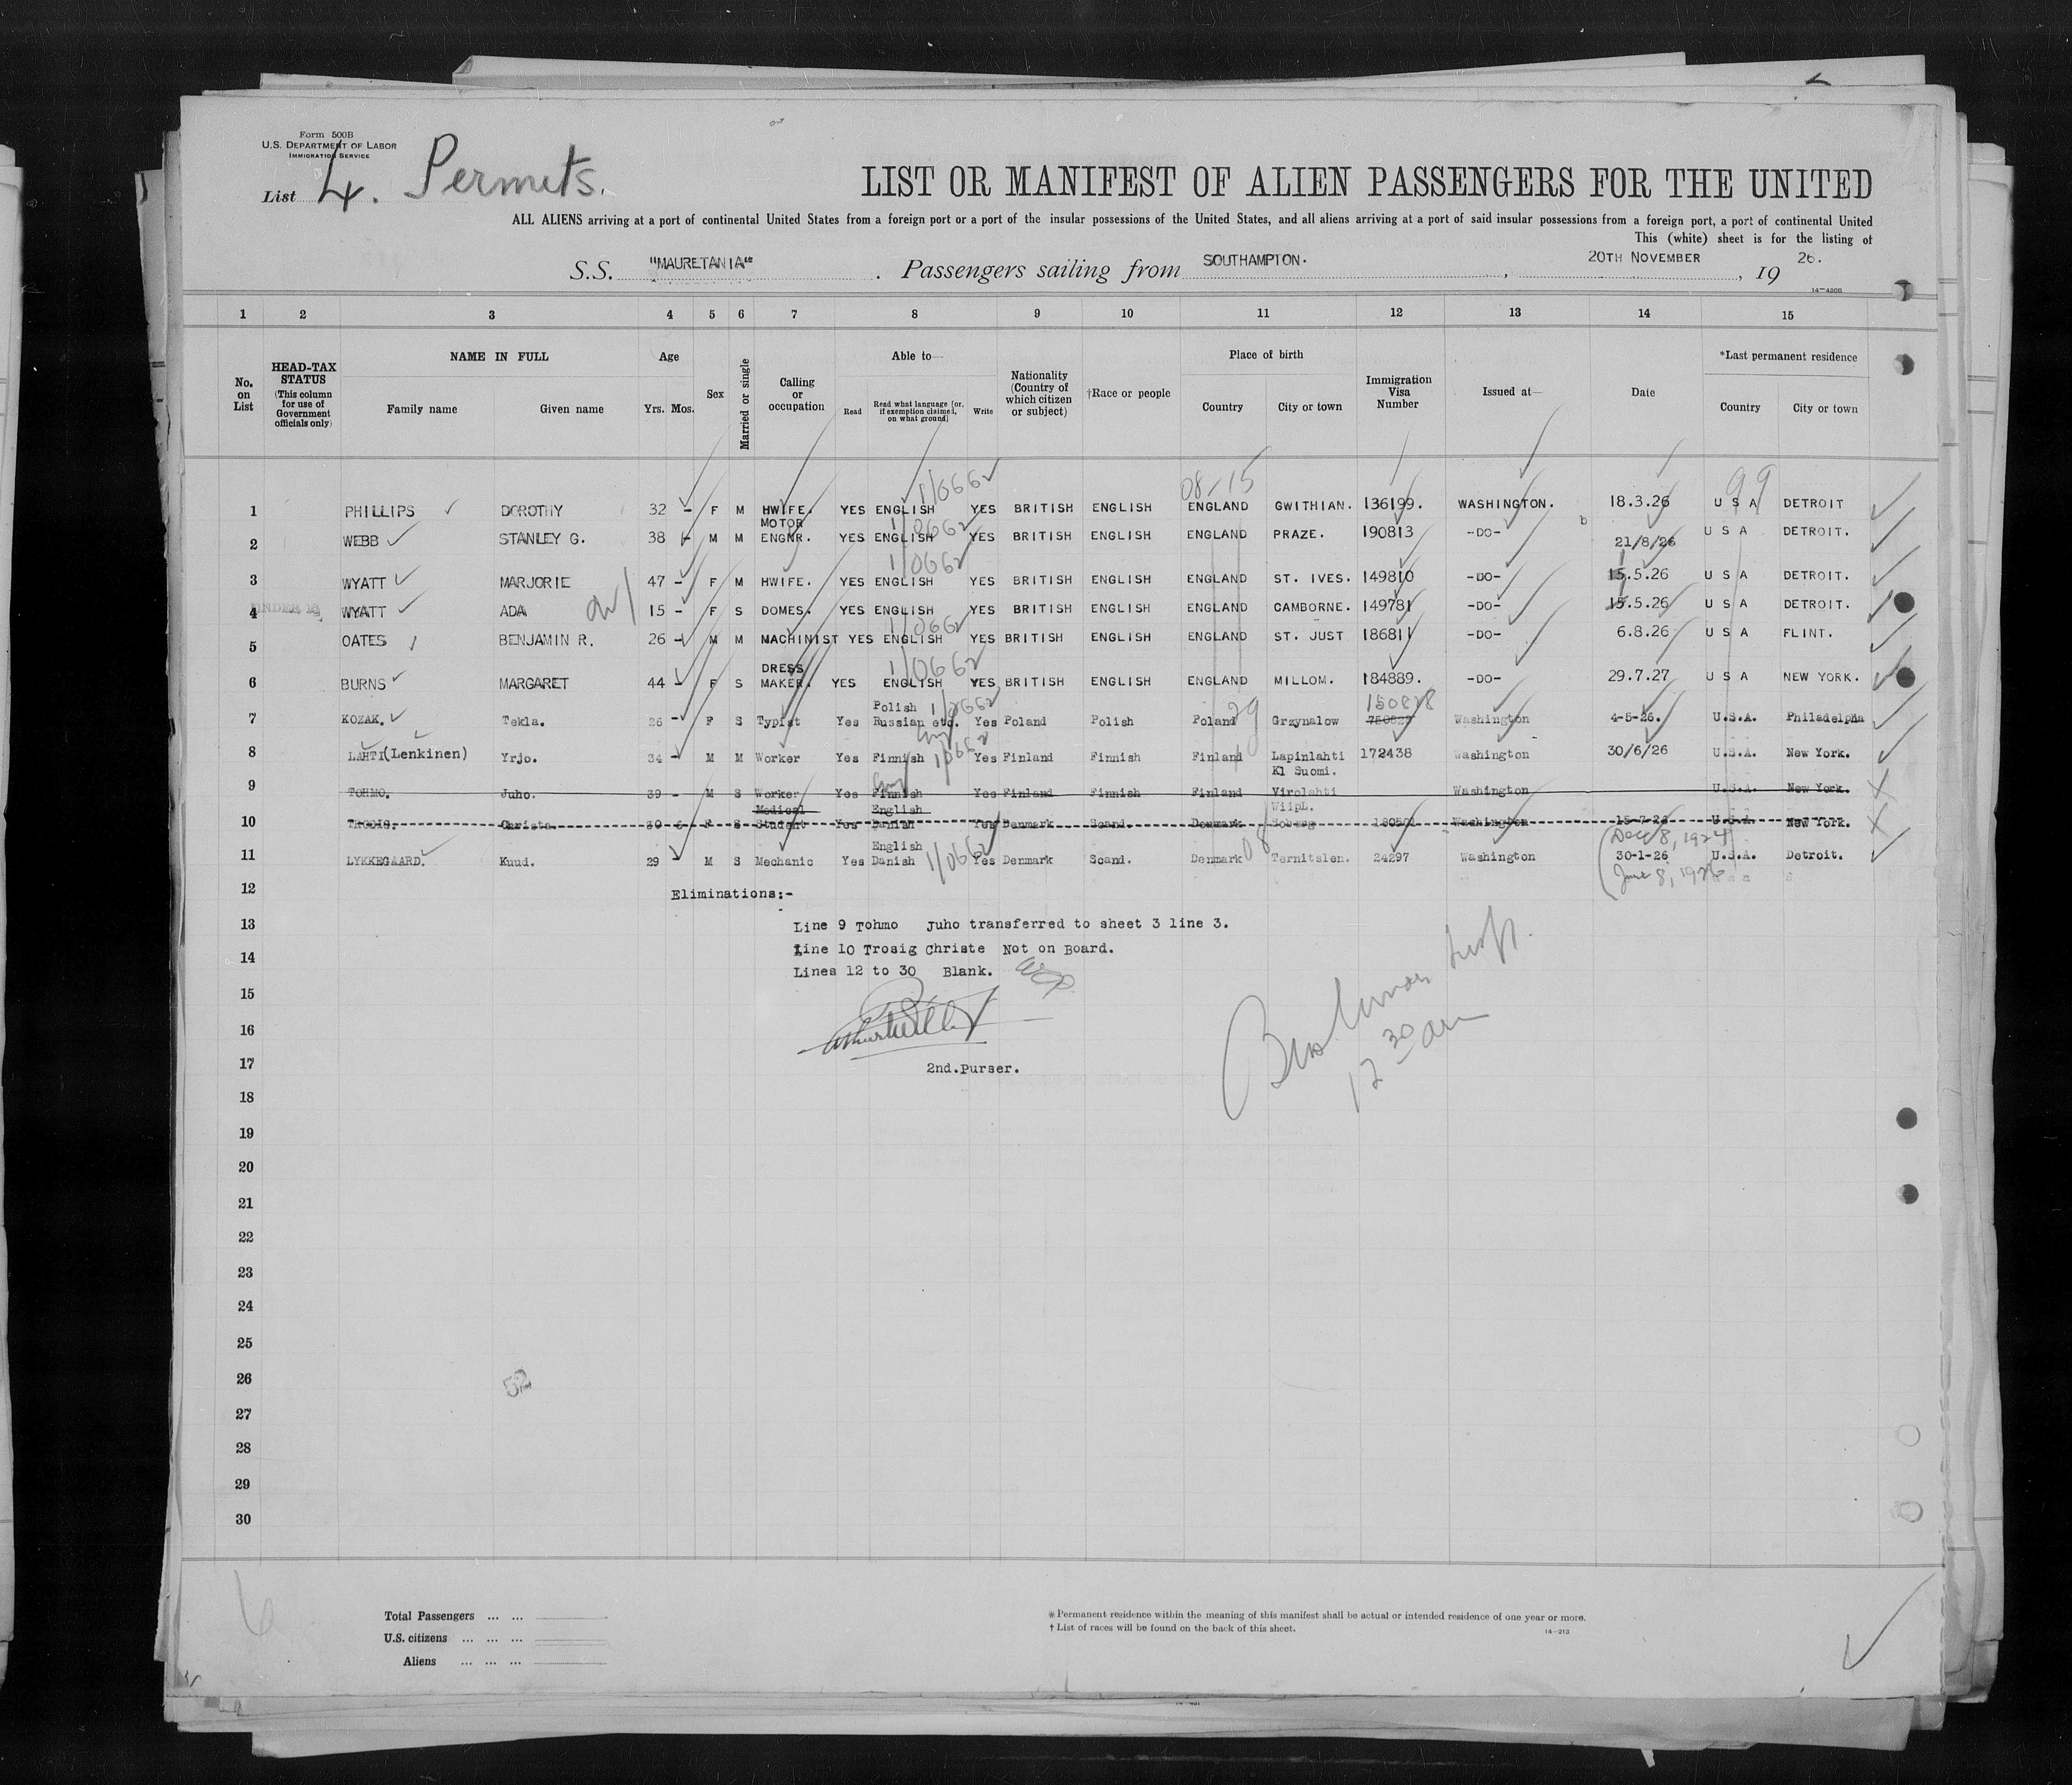 Form 500B
U.S. DEPARTMENT OF LABOR
IMMIGRATION SERVICE
List 4. Permits.
LIST OR MANIFEST OF ALIEN PASSENGERS FOR THE UNITED
ALL ALIENS arriving at a port of continental United States from a foreign port or a port of the insular possessions of the United States, and all aliens arriving at a port of said insular possessions from a foreign port, a port of continental United
This (white) sheet is for the listing of
S.S. "MAURETANIA" . Passengers sailing from SOUTHAMPTON. , 20TH NOVEMBER , 19 26.
14-430B
1 2 3 4 5 6 7 8 9 10 11 12 13 14 15
No. on List
HEAD-TAX STATUS (This column for use of Government officials only)
NAME IN FULL Family name Given name
Age Yrs. Mos.
Sex
Married or single
Calling or occupation
Able to— Read Read what language (or, if exemption claimed, on what ground) Write
Nationality (Country of which citizen or subject)
†Race or people
Place of birth Country City or town
Immigration Visa Number
Issued at—
Date
*Last permanent residence Country City or town
1/0662 08-15 99
1 PHILLIPS DOROTHY 32 - F M HWIFE. YES ENGLISH YES BRITISH ENGLISH ENGLAND GWITHIAN. 136199. WASHINGTON. 18.3.26 U S A DETROIT
MOTOR 1/0662
2 WEBB STANLEY G. 38 - M M ENGNR. YES ENGLISH YES BRITISH ENGLISH ENGLAND PRAZE. 190813 -DO- 21/8/26 U S A DETROIT.
1/0662
3 WYATT MARJORIE 47 - F M HWIFE. YES ENGLISH YES BRITISH ENGLISH ENGLAND ST. IVES. 149810 -DO- 15.5.26 U S A DETROIT.
UNDER 16
4 WYATT ADA 15 - F S DOMES. YES ENGLISH YES BRITISH ENGLISH ENGLAND CAMBORNE. 149781 -DO- 15.5.26 U S A DETROIT.
1/0662
5 OATES BENJAMIN R. 26 - M M MACHINIST YES ENGLISH YES BRITISH ENGLISH ENGLAND ST. JUST 186811 -DO- 6.8.26 U S A FLINT.
DRESS 1/0662
6 BURNS MARGARET 44 - F S MAKER. YES ENGLISH YES BRITISH ENGLISH ENGLAND MILLOM. 184889. -DO- 29.7.27 U S A NEW YORK.
Polish 1/0662 150828
7 KOZAK. Tekla. 26 - F S Typist Yes Russian etc. Yes Poland Polish Poland Grzynalow Washington 4-5-26. U.S.A. Philadelpha
8 LAHTI (Lenkinen) Yrjo. 34 - M M Worker Yes Finnish 1/0662 Yes Finland Finnish Finland Lapinlahti 172438 Washington 30/6/26 U.S.A. New York.
Kl Suomi.
9 TOHMO. Juho. 39 - M S Worker Yes Finnish Yes Finland Finnish Finland Virolahti Washington U.S.A. New York.
Medical English WiipL.
10 Christe 30 F S Student Yes Danish Yes Denmark Scand. Denmark Washington U.S.A. New York.
English (Dec 8, 1924)
11 LYKKEGAARD. Kuud. 29 M S Mechanic Yes Danish 1/0662 Yes Denmark Scand. Denmark Ternitslen. 24297 Washington 30-1-26 U.S.A. Detroit.
(June 8, 1926
12 Eliminations:-
13 Line 9 Tohmo Juho transferred to sheet 3 line 3.
14 Line 10 Trosig Christe Not on Board.
Lines 12 to 30 Blank.
15
16
17 2nd.Purser.
12 30 am
18
19
20
21
22
23
24
25
26
52
27
28
29
30
6
Total Passengers ... ...
U.S. citizens ... ... ...
Aliens ... ... ...
* Permanent residence within the meaning of this manifest shall be actual or intended residence of one year or more.
† List of races will be found on the back of this sheet.
14-213